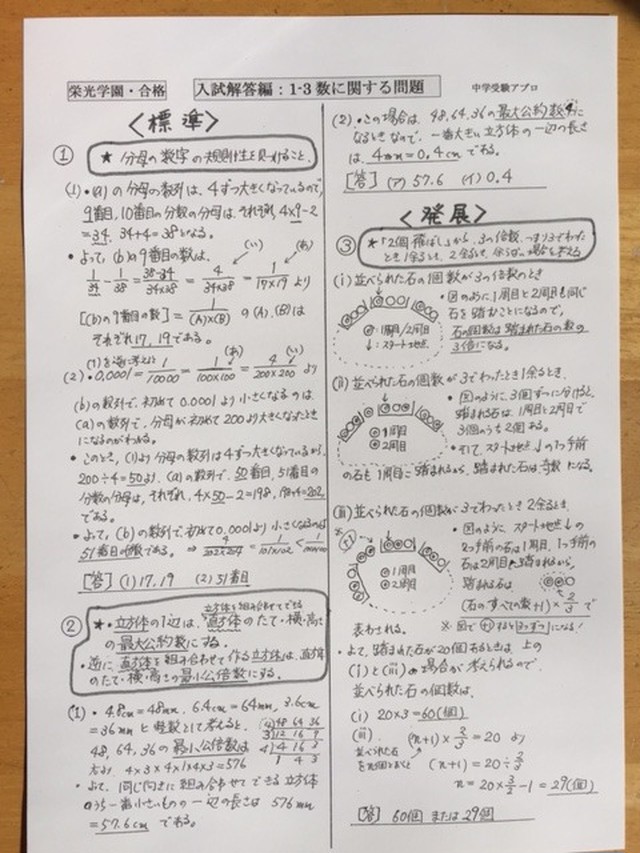 栄光学園・合格
入試解答編：1-3 数に関する問題
中学受験アプロ
＜標準＞
①
★分母の数字の規則性を見つけること。
(1)・(a)の分母の数列は、4ずつ大きくなっているので、
9番目、10番目の分数の分母は、それぞれ、4×9-2
=34、34+4=38となる。
・よって、(b)の9番目の数は、
(い) (あ)
1/34 - 1/38 = 38-34/34×38 = 4/34×38 = 1/17×19 より
[(b)の9番目の数] = 1/(A)×(B) の(A)、(B)は
それぞれ17、19である。
(1)を逆に考えると (あ) (い)
(2)・0.0001 = 1/10000 = 1/100×100 = 4/200×200 より
(b)の数列で、初めて0.0001より小さくなるのは
(a)の数列で、分母が初めて200より大きくなったとき
になるのがわかる。
・このとき、(1)より分母の数列は4ずつ大きくなっているから、
200÷4=50より、(a)の数列で、50番目、51番目の
分数の分母は、それぞれ、4×50-2=198、198+4=202
である。
・よって、(b)の数列で、初めて0.0001より小さくなるのは
51番目の数である。 ⇒ 4/202×204 = 1/101×102 < 1/100×100
[答] (1) 17, 19 (2) 51番目
②
立方体を組み合わせてできる
★・立方体の1辺は、直方体のたて・横・高さ
の最大公約数にする。
・逆に、直方体を組み合わせて作る立方体は、直方体
のたて・横・高さの最小公倍数にする。
(1)・4.8cm=48mm、6.4cm=64mm、3.6cm
=36mmと整数として考えると、
48, 64, 36の最小公倍数は
4) 48 64 36
3) 12 16 9
4) 4 16 3
1 4 3
右より、4×3×4×1×4×3=576
・よって、同じ向きに組み合わせてできる立方体
のうち一番小さいものの一辺の長さは 576mm
=57.6cm である。
(2)・この場合は、48, 64, 36の最大公約数4に
なるときなので、一番大きい立方体の一辺の長さ
は、4mm=0.4cmである。
[答] (ア) 57.6 (イ) 0.4
＜発展＞
③
★「2個飛ばし」から、3の倍数、つまり3でわった
とき1余るとき、2余るとき、余らない場合を考える
(i) 並べられた石の個数が3の倍数のとき
・図のように、1周目と2周目も同じ
石を踏むことになるので、
石の個数は踏まれた石の数の
3倍になる。
◎：1周目/2周目
↓：スタート地点
(ii) 並べられた石の個数が3でわったとき1余るとき、
・図のように、3個ずつに分けると、
踏まれる石は、1周目と2周目で
3個のうち2個ある。
◎1周目
◎2周目
・そして、スタート地点↓の1つ手前
の石も1周目に踏まれるから、踏まれた石は奇数になる。
(iii) 並べられた石の個数が3でわったとき2余るとき、
・図のように、スタート地点↓の
2つ手前の石は1周目、1つ手前の
石は2周目に踏まれるから、
◎1周目
◎2周目
踏まれる石は
(石のすべての数+1)×2/3 で
表わされる。
・よって、踏まれた石が20個あるときは、上の
(i)と(iii)の場合が考えられるので、
並べられた石の個数は、
(i) 20×3=60(個)
(iii) (n+1)×2/3=20 より
並べられた石
をn個とおくと
(n+1)=20÷2/3
n=20×3/2-1=29(個)
[答] 60個 または 29個